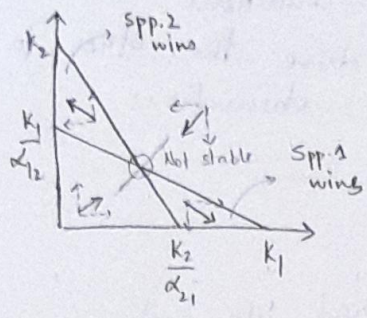 Spp.2
wins
K2
K1
α12
Not stable
Spp.1
wins
K2
α21
K1